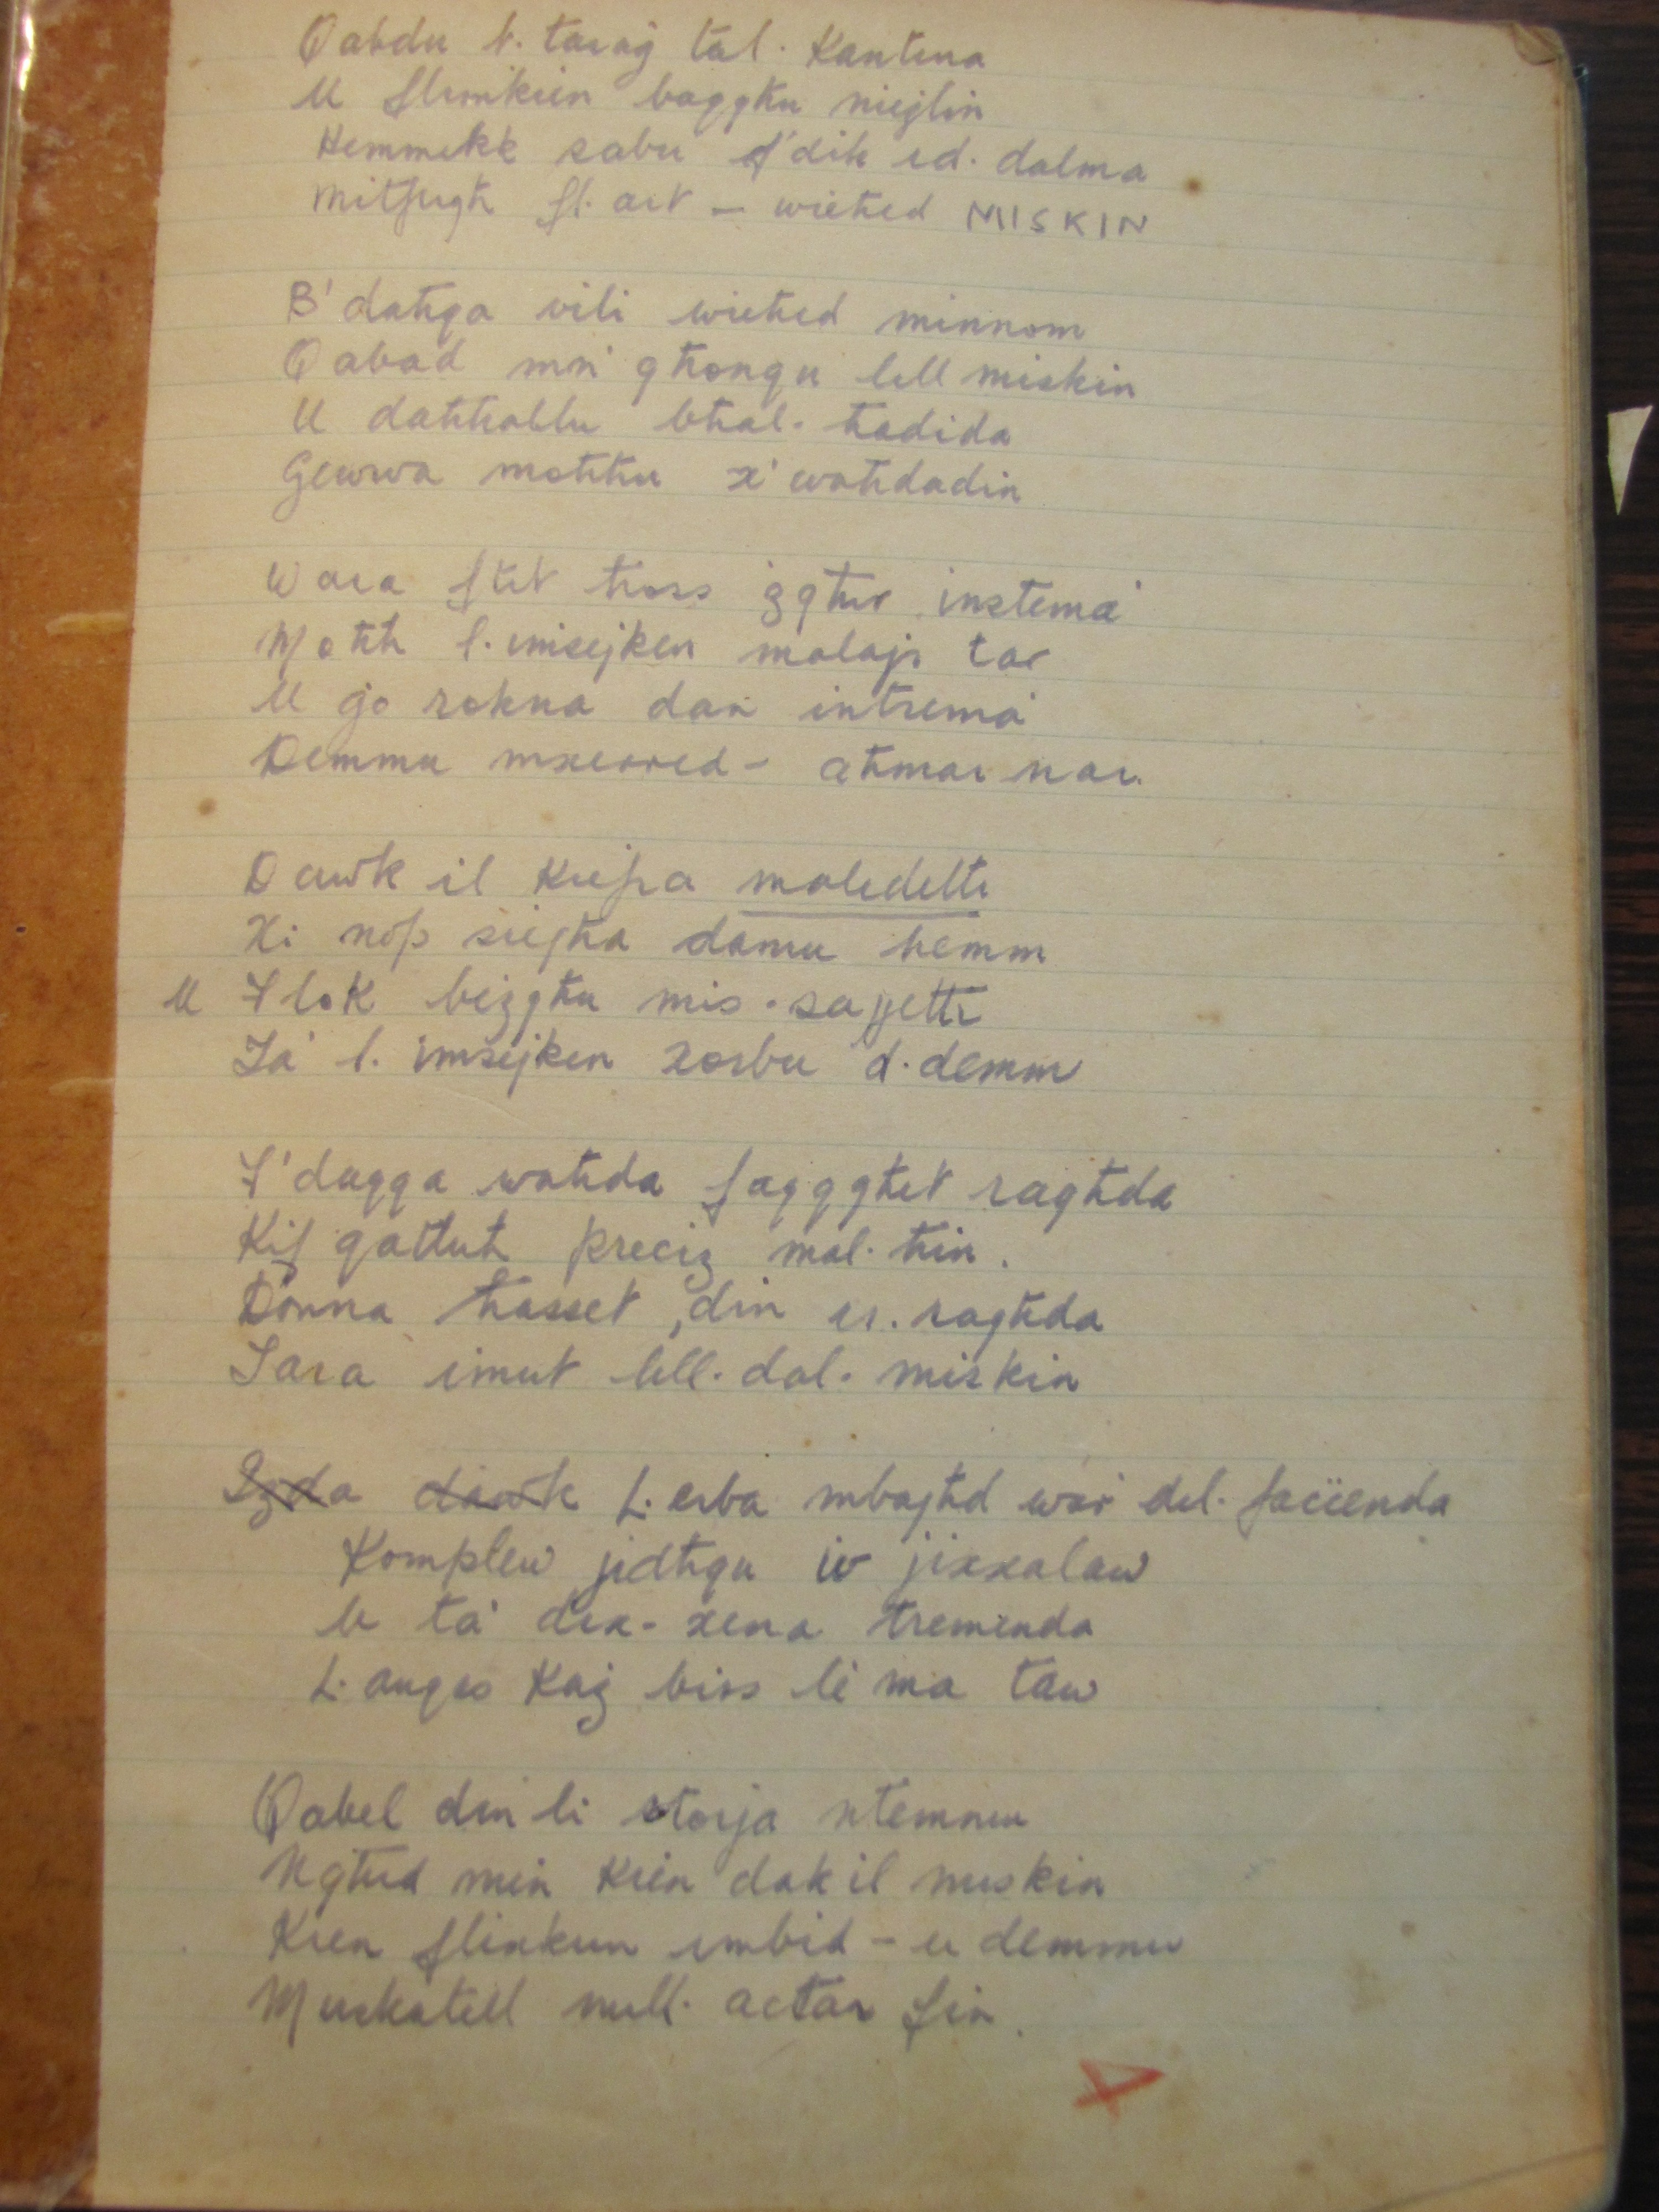 Qabdu t. taraġ tal. Kantina
U flimkien baqgħu nieżlin
Hemmekk sabu f'dik id. dalma
Mitfugħ fl. art – wieħed MISKIN

B'daħqa vili wieħed minnom
Qabad mn' għonqu lill miskin
U daħħallu bħal. ħadida
Ġewwa moħħu x' waħdadin

Wara ftit ħoss żgħir instema'
Moħħ l. imsejken malajr tar
U ġo rokna dan intrema'
Demmu mxerred – aħmar nar.

Dawk il Kiefra maledetti
Xi ħofs siegħa damu hemm
U F'lok beżgħu mis. sajjetti
Ta' l. imsejken xorbu d. demm

F'daqqa waħda faqqgħet ragħda
Kif qattuh preċiż mal. ħin.
Donna ħasset, din ir. ragħda
Tara imut lill. dal. miskin

L. erba mbagħd war' dil. faċċenda
Komplew jidħqu iv jixxalaw
U ta' dix- xena tremenda
L. anqas Każ biss li ma taw

Qabel din li storja ntemmu
Ngħid min Kien dak il miskin
Kien flixkun imbid – u demmu
Muskatell mill. actar fin.